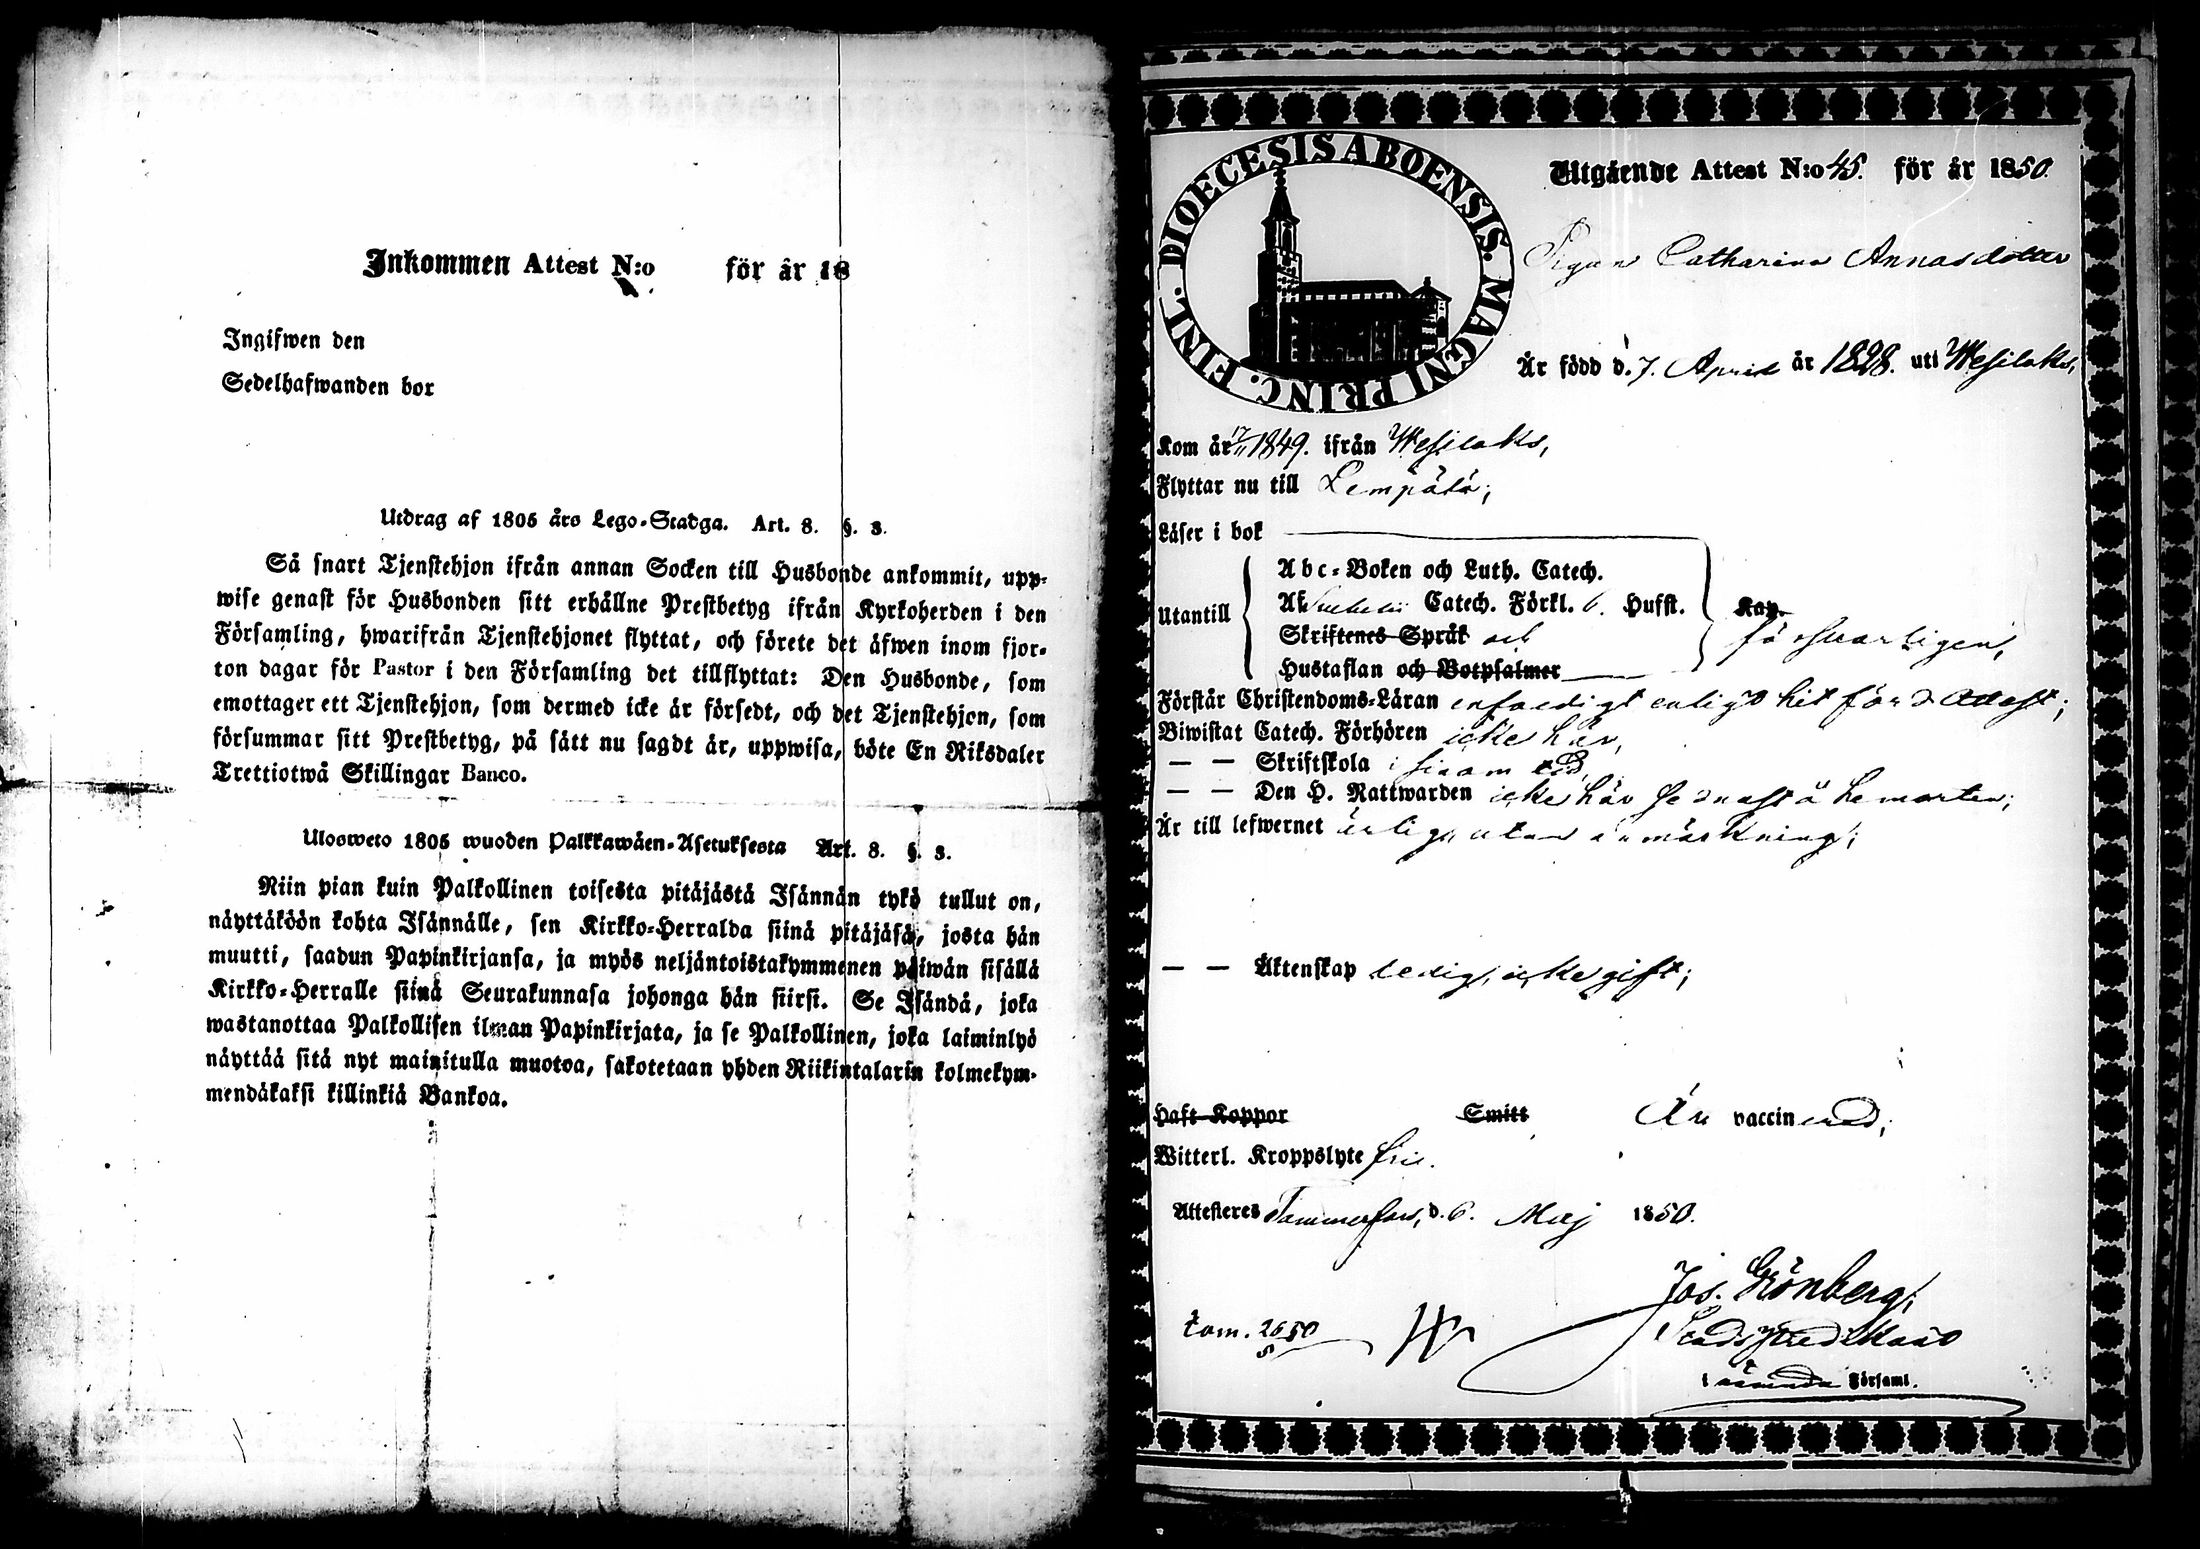 Inkommen Attest N:o för år 18
Ingifwen den
Sedelhafwanden bor
Utdrag af 1805 års Lego-Stadga. Art. 8. §. 3.
Så snart Tjenstehjon ifrån annan Socken till Husbonde ankommit, upp-
wise genast för Husbonden sitt erhållne Prestbetyg ifrån Kyrkoherden i den
Församling, hwarifrån Tjenstehjonet flyttat, och förete det äfwen inom fjor-
ton dagar för Pastor i den Församling det tillflyttat: Den Husbonde, som
emottager ett Tjenstehjon, som dermed icke är försedt, och det Tjenstehjon, som
försummar sitt Prestbetyg, på sätt nu sagdt är, uppwisa, böte En Riksdaler
Trettiotwå Skillingar Banco.
Ulosweto 1805 wuoden Palkkawäen-Asetuksesta Art. 8. §. 3.
Niin pian kuin Palkollinen toisesta pitäjästä Isännän tykö tullut on,
näyttäköön kohta Isännälle, sen Kirkko-Herralda siinä pitäjäsä, josta hän
muutti, saadun Papinkirjansa, ja myös neljäntoistakymmenen päiwän sisällä
Kirkko-Herralle siinä Seurakunnasa johonga hän siirsi. Se Isändä, joka
wastanottaa Palkollisen ilman Papinkirjata, ja se Palkollinen, joka laiminlyö
näyttää sitä nyt mainitulla muotoa, sakotetaan yhden Riikintalarin kolmekym-
mendäkaksi killinkiä Bankoa.
DIOECESIS ABOENSIS. MAGNI PRINC. FINL.
Utgående Attest N:o 45. för år 1850.
Pigan Catharina Annasdotter
År född d. 7. April år 1828. uti Wesilaks,
Kom år 17/11 1849. ifrån Wesilaks,
Flyttar nu till Lempälä;
Läser i bok
Abc-Boken och Luth. Catech.
Utantill Catech. Förkl. 6. Hufst. Kap.
Skriftenes Språk och försvarligen,
Hustaflan och Botpsalmer
Förstår Christendoms-Läran enfaldigt enligt hitförd Attest;
Biwistat Catech. Förhören icke här,
— — Skriftskola i sinom tid
— — Den H. Nattwarden icke här sednast å hemorten;
Är till lefwernet ärlig, utan anmärkning;
— — Äktenskap ledig, icke gift;
Haft Koppor Smitt Är vaccinerad;
Witterl. Kroppslyte fri.
Attesteres Tammerfors, d. 6. Maj 1850.
Jos. Grönberg,
Kom. 26/5 50 Stadspredikant
i nämnda Församl.